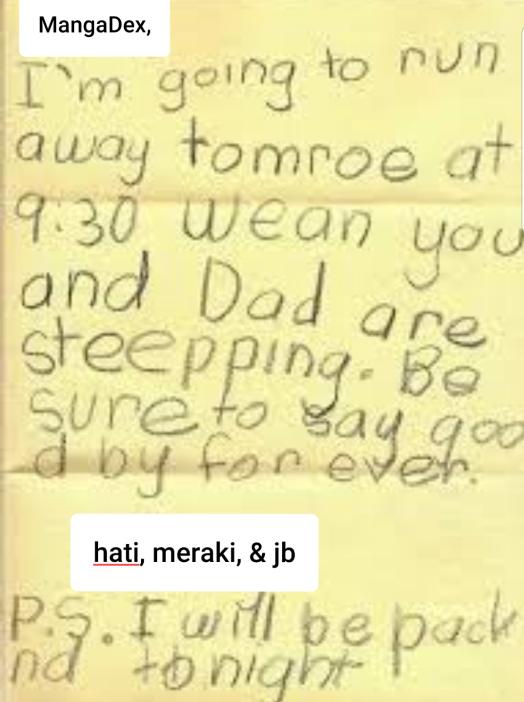 MangaDex,
I'm going to run
away tomroe at
9:30 wean you
and Dad are
steepping. Be
sure to say goo
d by for ever.
hati, meraki, & jb
P.S. I will be pack
nd tonight